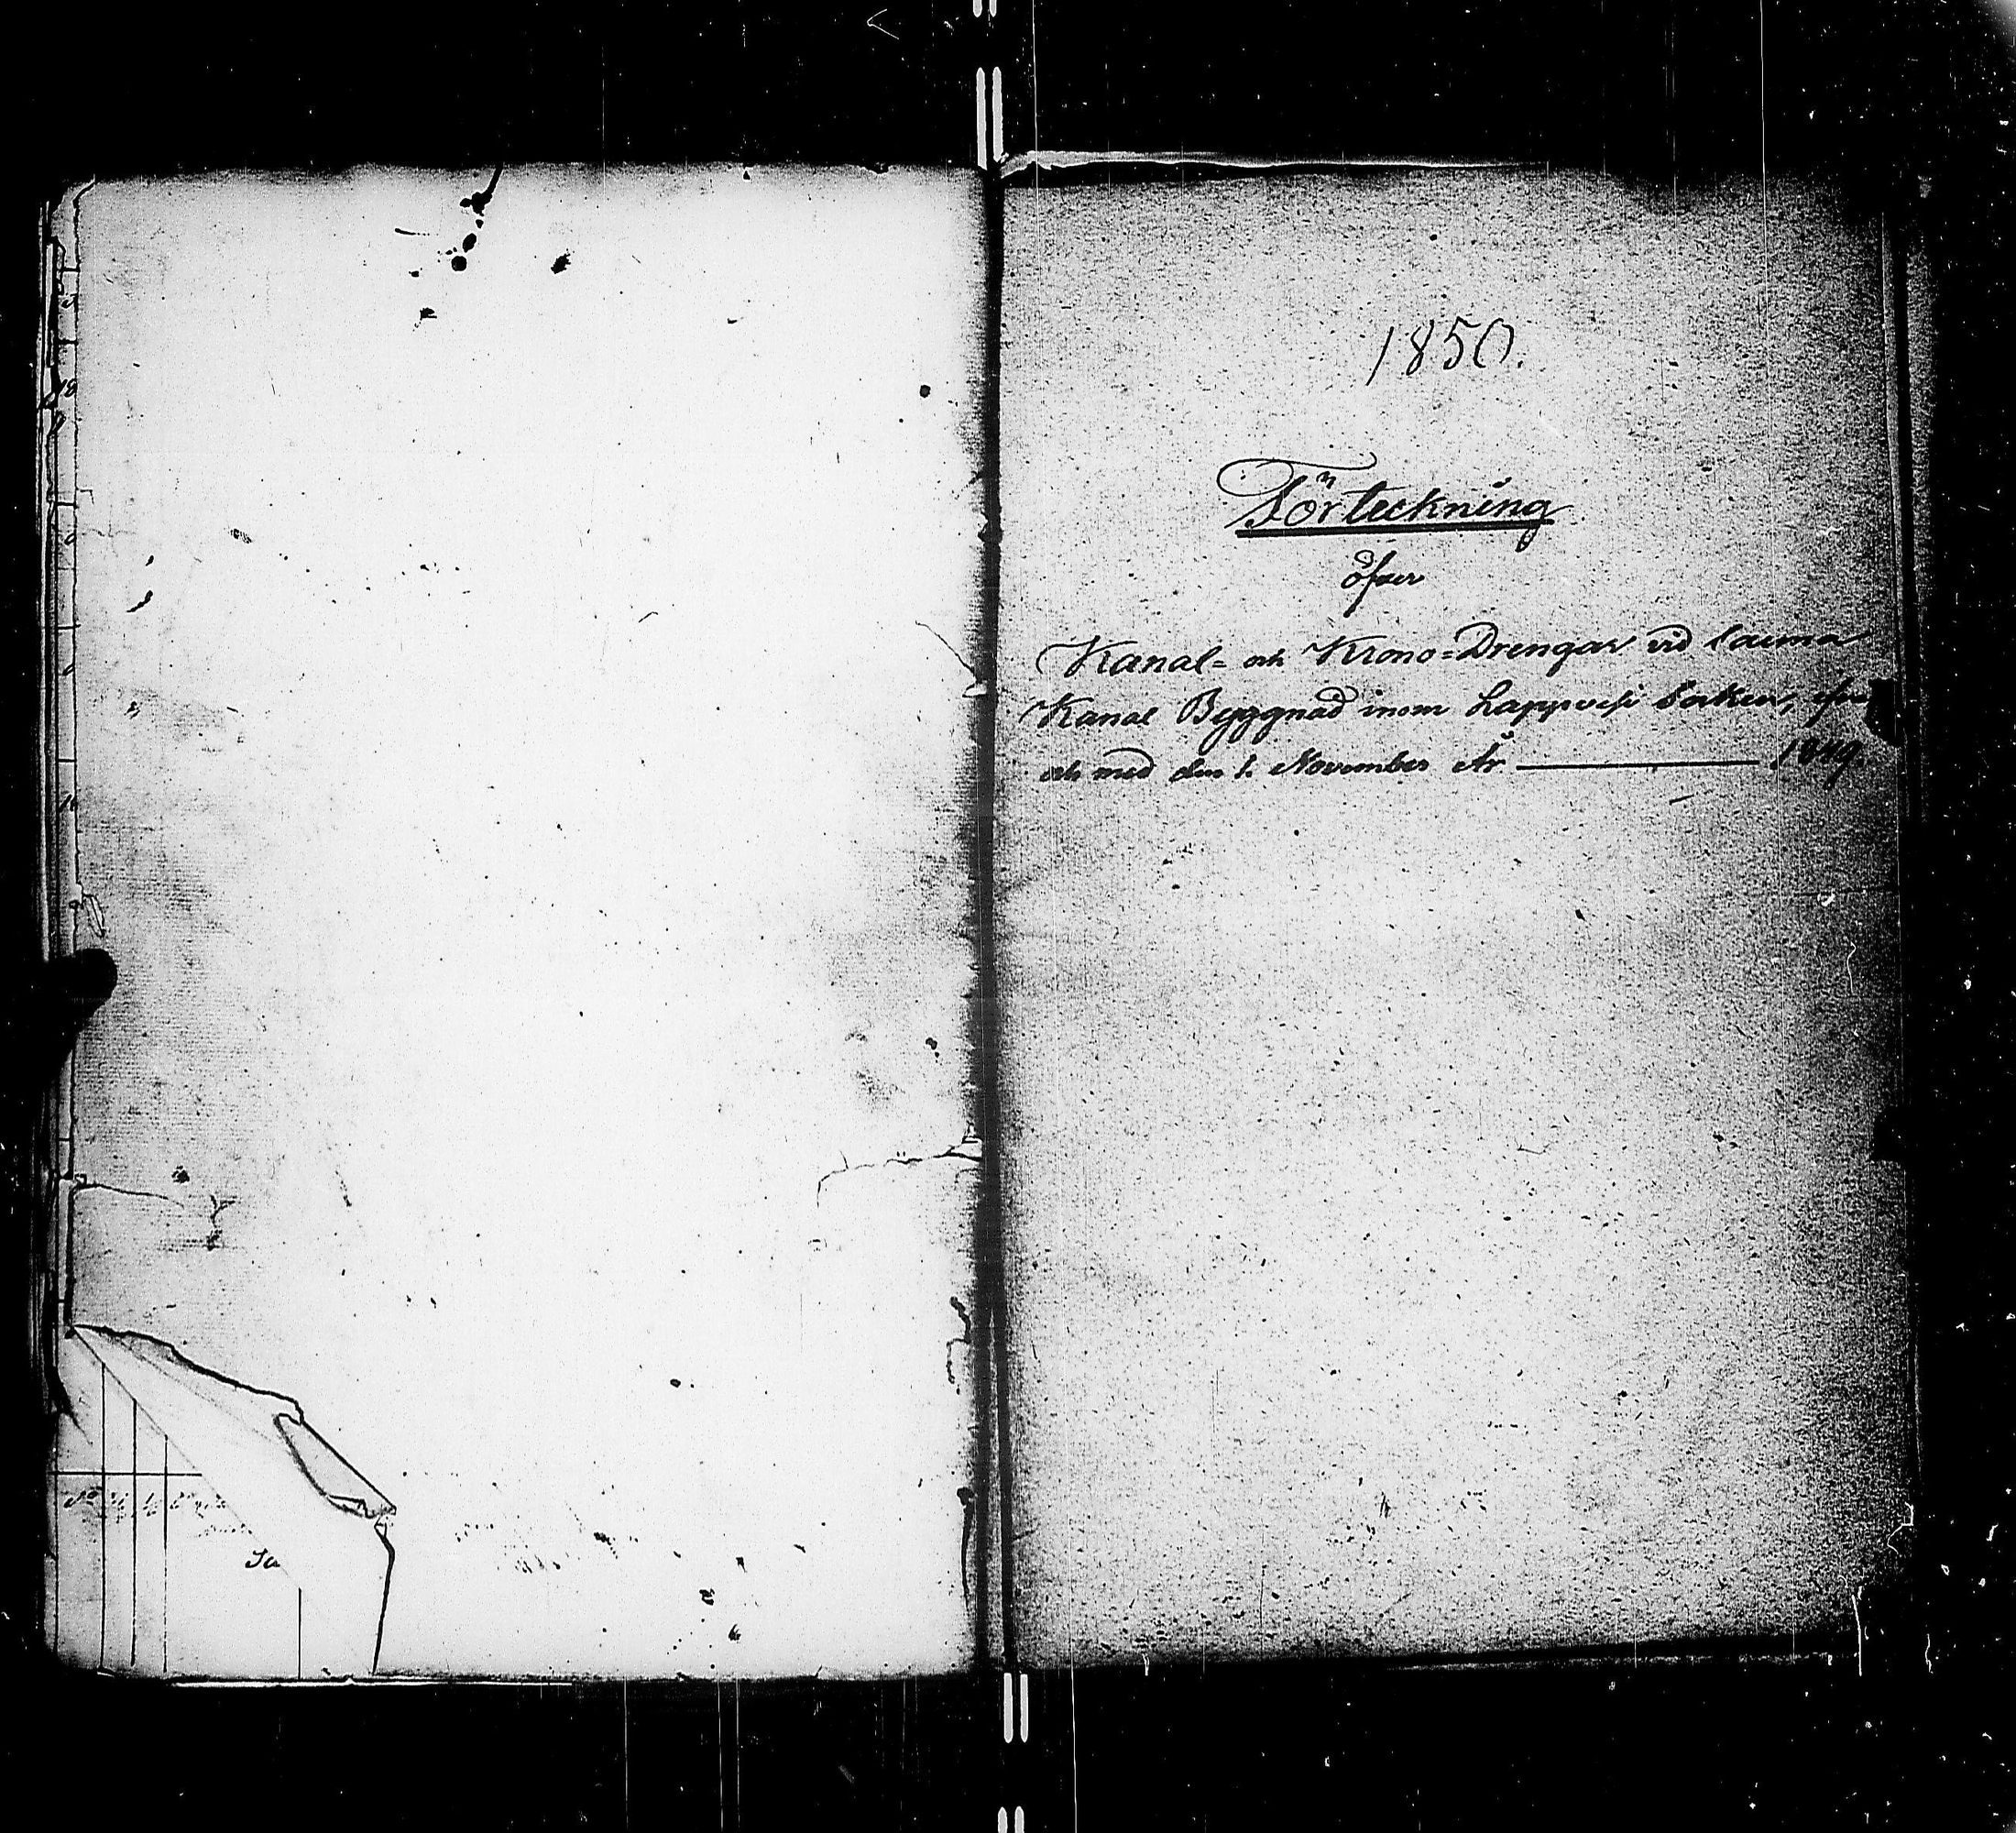 1850.
Förteckning
öfver
Kanal= och Krono=Drengar vid Saima
Kanal Byggnad inom Lappvesi Socken, ifrån
och med den 1. November År ——— 1849.
Sa